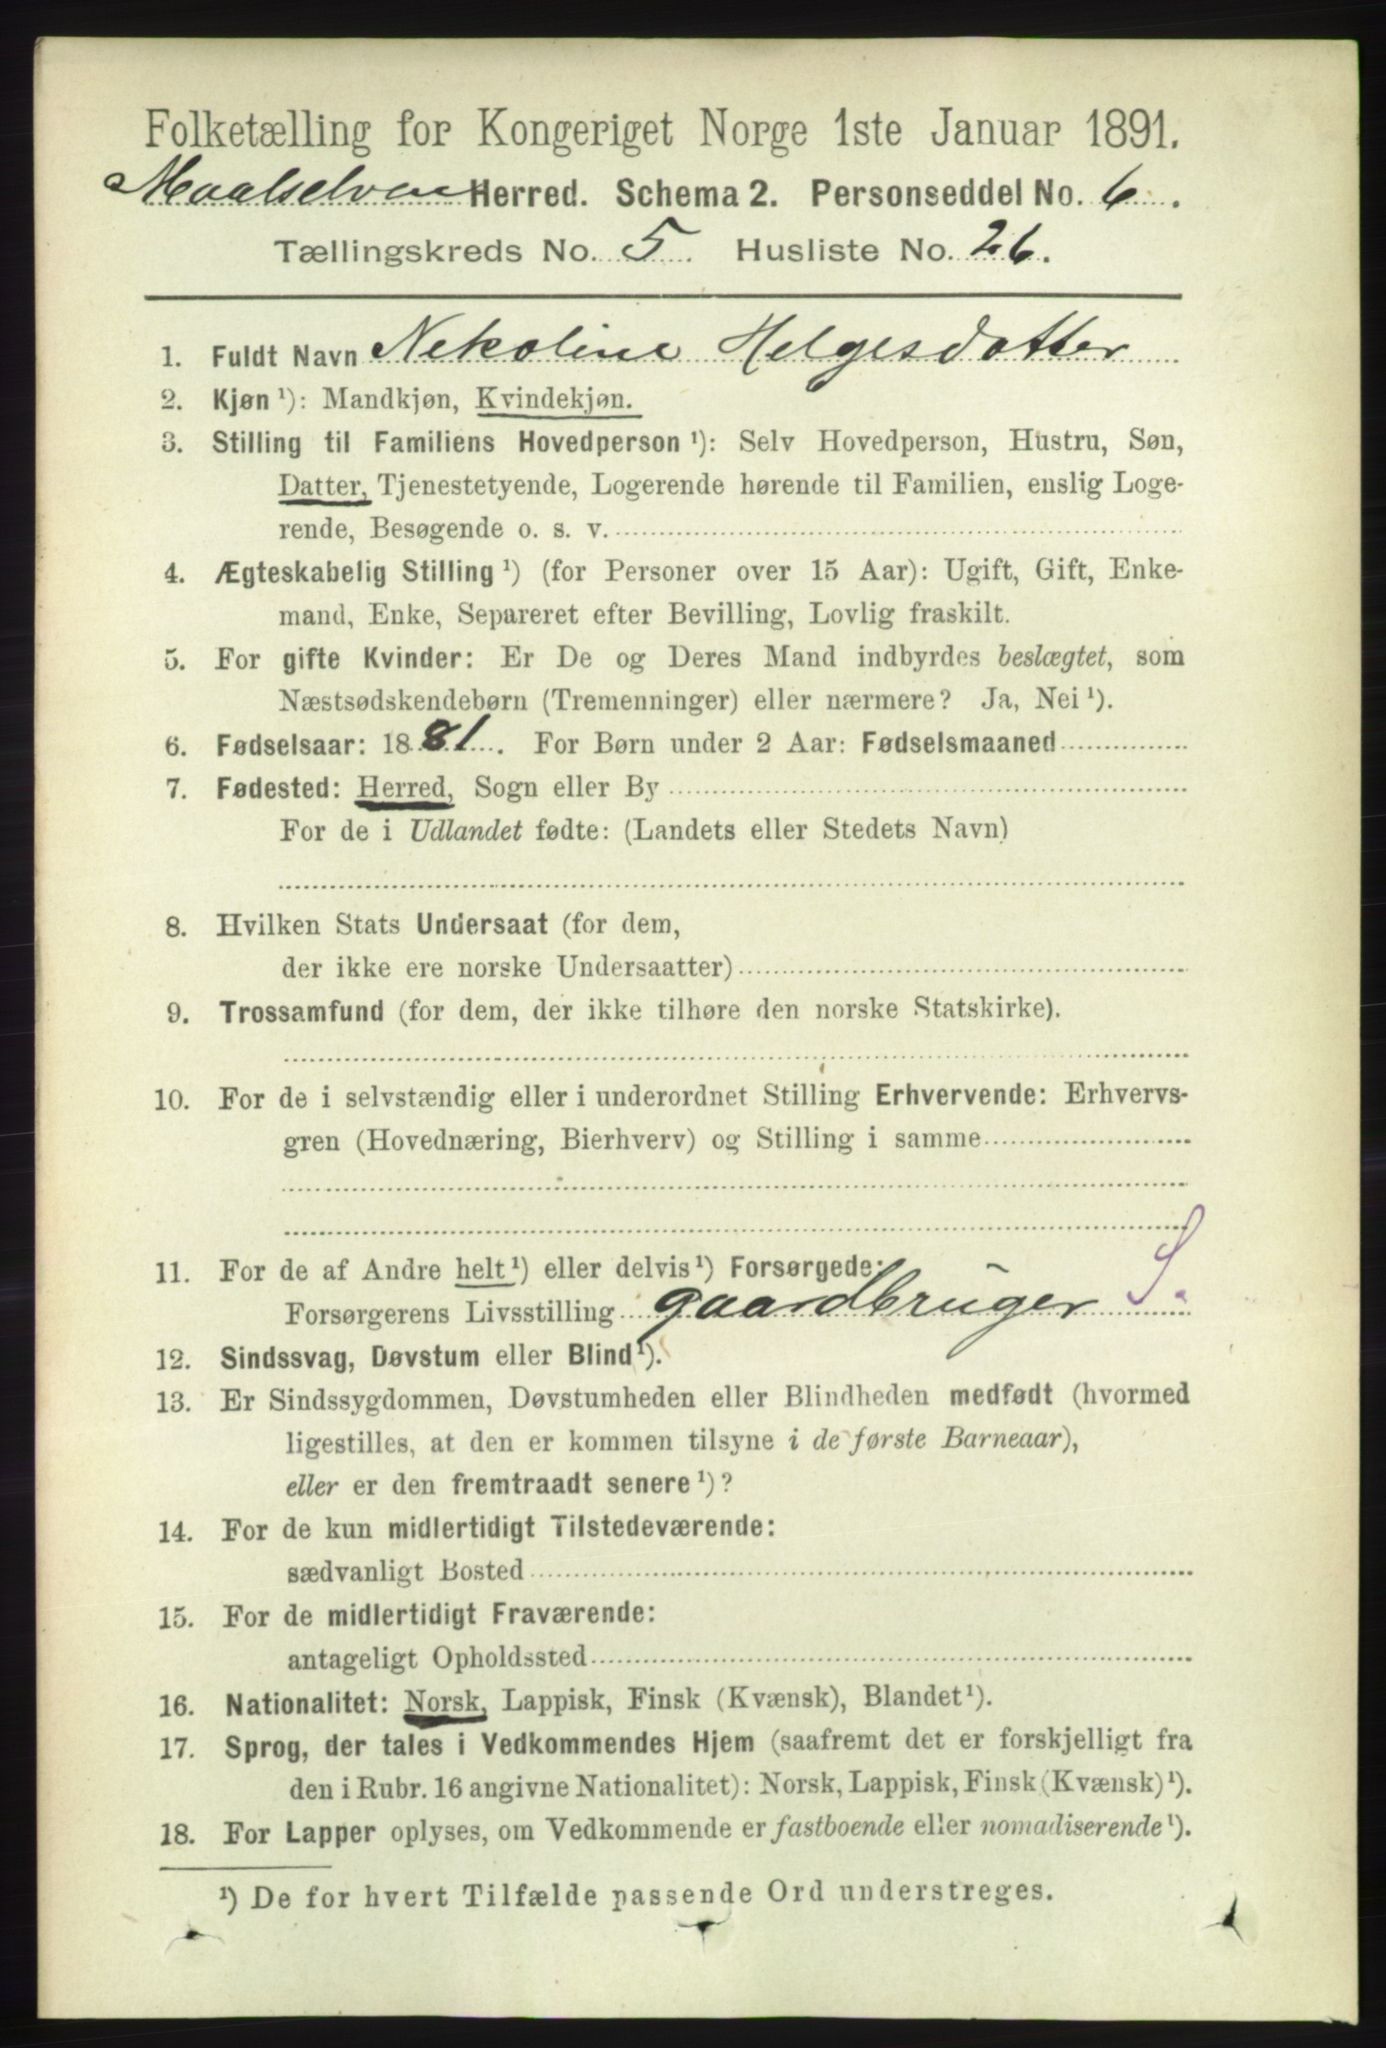 Folketælling for Kongeriget Norge 1ste Januar 1891.
Maalselven Herred. Schema 2. Personseddel No. 6.
Tællingskreds No. 5. Husliste No. 26.
1. Fuldt Navn Nekoline Helgesdatter
2. Kjøn ¹): Mandkjøn, Kvindekjøn.
3. Stilling til Familiens Hovedperson ¹): Selv Hovedperson, Hustru, Søn,
Datter, Tjenestetyende, Logerende hørende til Familien, enslig Loge-
rende, Besøgende o. s. v.
4. Ægteskabelig Stilling ¹) (for Personer over 15 Aar): Ugift, Gift, Enke-
mand, Enke, Separeret efter Bevilling, Lovlig fraskilt.
5. For gifte Kvinder: Er De og Deres Mand indbyrdes beslægtet, som
Næstsødskendebørn (Tremenninger) eller nærmere? Ja, Nei ¹).
6. Fødselsaar: 1881. For Børn under 2 Aar: Fødselsmaaned
7. Fødested: Herred, Sogn eller By
For de i Udlandet fødte: (Landets eller Stedets Navn)
8. Hvilken Stats Undersaat (for dem,
der ikke ere norske Undersaatter)
9. Trossamfund (for dem, der ikke tilhøre den norske Statskirke).
10. For de i selvstændig eller i underordnet Stilling Erhvervende: Erhvervs-
gren (Hovednæring, Bierhverv) og Stilling i samme
11. For de af Andre helt ¹) eller delvis ¹) Forsørgede:
Forsørgerens Livsstilling gaardbruger S.
12. Sindssvag, Døvstum eller Blind ¹).
13. Er Sindssygdommen, Døvstumheden eller Blindheden medfødt (hvormed
ligestilles, at den er kommen tilsyne i de første Barneaar),
eller er den fremtraadt senere ¹)?
14. For de kun midlertidigt Tilstedeværende:
sædvanligt Bosted
15. For de midlertidigt Fraværende:
antageligt Opholdssted
16. Nationalitet: Norsk, Lappisk, Finsk (Kvænsk), Blandet ¹).
17. Sprog, der tales i Vedkommendes Hjem (saafremt det er forskjelligt fra
den i Rubr. 16 angivne Nationalitet): Norsk, Lappisk, Finsk (Kvænsk) ¹).
18. For Lapper oplyses, om Vedkommende er fastboende eller nomadiserende ¹).
¹) De for hvert Tilfælde passende Ord understreges.